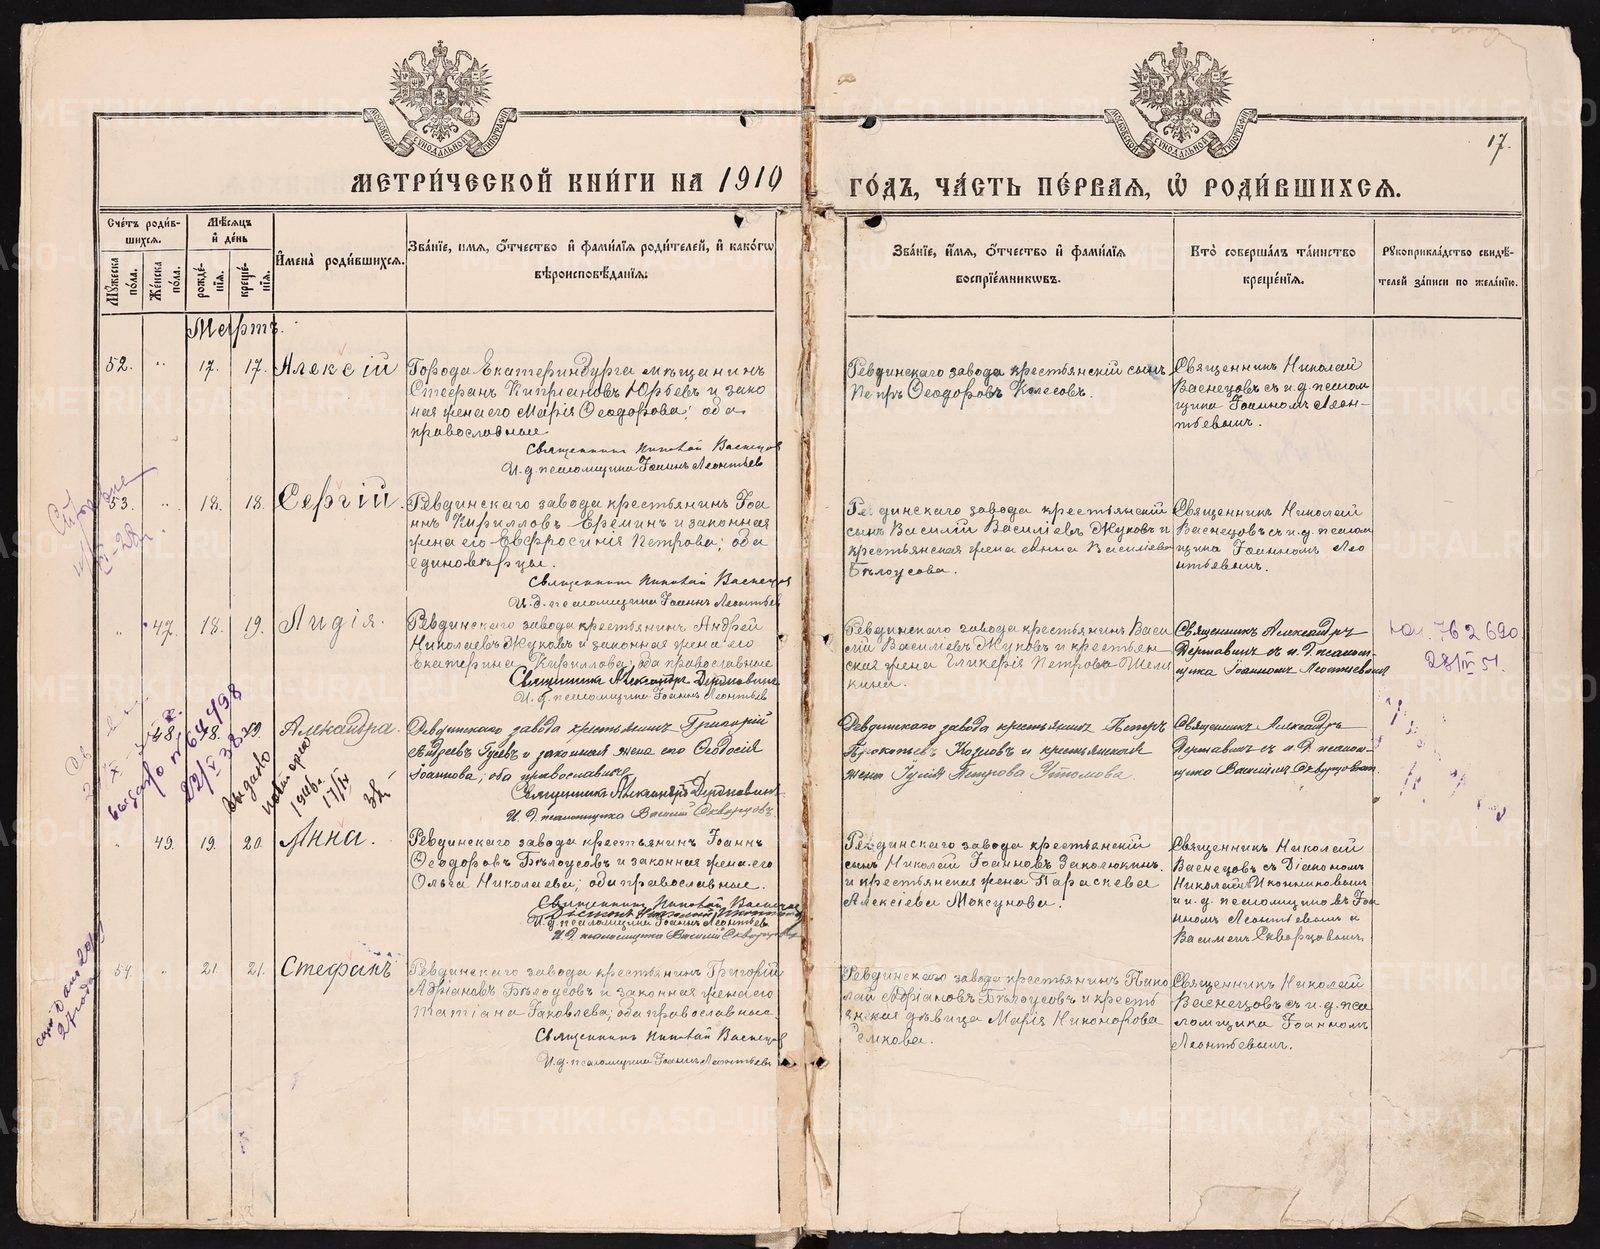 МЕТРИ́ЧЕСКОЙ КНИ́ГИ НА 1910
ГО́ДЪ, ЧА́СТЬ ПЕ́РВАЯ, Ѡ҆ РОДИ́ВШИХСЯ.
17.
Сче́тъ роди́в-
шихся.
Мѣ́сяцъ
и҆ де́нь
Му́жеска
по́ла.
Же́нска
по́ла.
рожде́-
нїя.
креще́-
нїя.
И҆мена̀ роди́вшихся.
Зва́нїе, и҆мя, ѻ҆́тчество и҆ фами́лїя роди́телей, и҆ како́гѡ
вѣроисповѣ́данїя:
Зва́нїе, и҆́мя, ѻ҆́тчество и҆ фами́лїя
воспрїе́мникѡвъ.
Кто̀ соверша́лъ та́инство
креще́нїя.
Рꙋкоприкла́дство свидѣ́-
телей за́писи по жела́нїю.
Мартъ.
52. " 17. 17. Алексій
Города Екатеринбурга мѣщанинъ
Стефанъ Кипріановъ Юрьевъ и зако
ная жена его Марія Ѳеодорова; оба
православные.
Священникъ Николай Васнецов
И.д. псаломщика Іоаннъ Леонтьев
Ревдинскаго завода крестьянскій сынъ
Петръ Ѳеодоровъ Колесовъ.
Священникъ Николай
Васнецовъ съ и.д. псалом
щика Іоанномъ Леон-
тьевымъ.
53. " 18. 18. Сергій.
Ревдинскаго завода крестьянинъ Іоа
ннъ Кирилловъ Ереминъ и законная
жена его Евфросинія Петрова; оба
единовѣрцы.
Священникъ Николай Васнецов
И.д. псаломщика Іоаннъ Леонтьев
Ревдинскаго завода крестьянскій
сынъ Василій Василіевъ Жуковъ и
крестьянская жена Анна Василіева
Бѣлоусова.
Священникъ Николай
Васнецовъ съ и.д. псалом
щика Іоанномъ Лео
нтьевымъ.
" 47. 18. 19. Лидія.
Ревдинскаго завода крестьянинъ Андрей
Николаевъ Жуковъ и законная жена его
Екатерина Кириллова; оба православные
Священникъ Александръ Державинъ
И.д. псаломщика Іоаннъ Леонтьев
Ревдинскаго завода крестьянинъ Васи
лій Василіевъ Жуковъ и крестьян
ская жена Гликерія Петрова Шели
кина.
Священникъ Александръ
Державинъ съ и.д. псалом-
щика Іоанномъ Леонтьевымъ
762690
28/IV 51.
48. 18. 19. Александра.
Ревдинскаго завода крестьянинъ Григорій
Андреевъ Гусевъ и законная жена его Ѳеодосія
Іоаннова; оба православные
Священникъ Александръ Державинъ
И.д. псаломщика Василій Скворцовъ
Ревдинскаго завода крестьянинъ Петръ
Прокопьевъ Козловъ и крестьянская
жена Юлія Петрова Утюмова.
Священникъ Александръ
Державинъ съ и.д. псалом-
щика Василіемъ Скворцовым.
выдано
№ 64498
22/V 38
Выдано
1946 г.
17/IV
" 49. 19. 20. Анна.
Ревдинскаго завода крестьянинъ Іоаннъ
Ѳеодоровъ Бѣлоусовъ и законная жена его
Ольга Николаева; оба православные.
Священникъ Николай Васнецов
И.д. псаломщика Іоаннъ Леонтьев
И.д. псаломщика Василій Скворцовъ
Ревдинскаго завода крестьянскій
сынъ Николай Іоанновъ Заколюкинъ.
и крестьянская жена Параскева
Алексіева Моксунова.
Священникъ Николай
Васнецовъ съ Діакономъ
Николаемъ Иконниковымъ
и и.д. псаломщиковъ Іоа
нномъ Леонтьевымъ и
Василіемъ Скворцовымъ.
54. " 21. 21. Стефанъ
Ревдинскаго завода крестьянинъ Григорій
Адріановъ Бѣлоусовъ и законная жена его
Татіана Іаковлева; оба православные.
Священникъ Николай Васнецов
И.д. псаломщика Іоаннъ Леонтьевъ
Ревдинскаго завода крестьянинъ Нико
лай Адріановъ Бѣлоусовъ и кресть
янская дѣвица Марія Никонорова
Священникъ Николай
Васнецовъ съ и.д. пса
ломщика Іоанномъ
Леонтьевымъ.